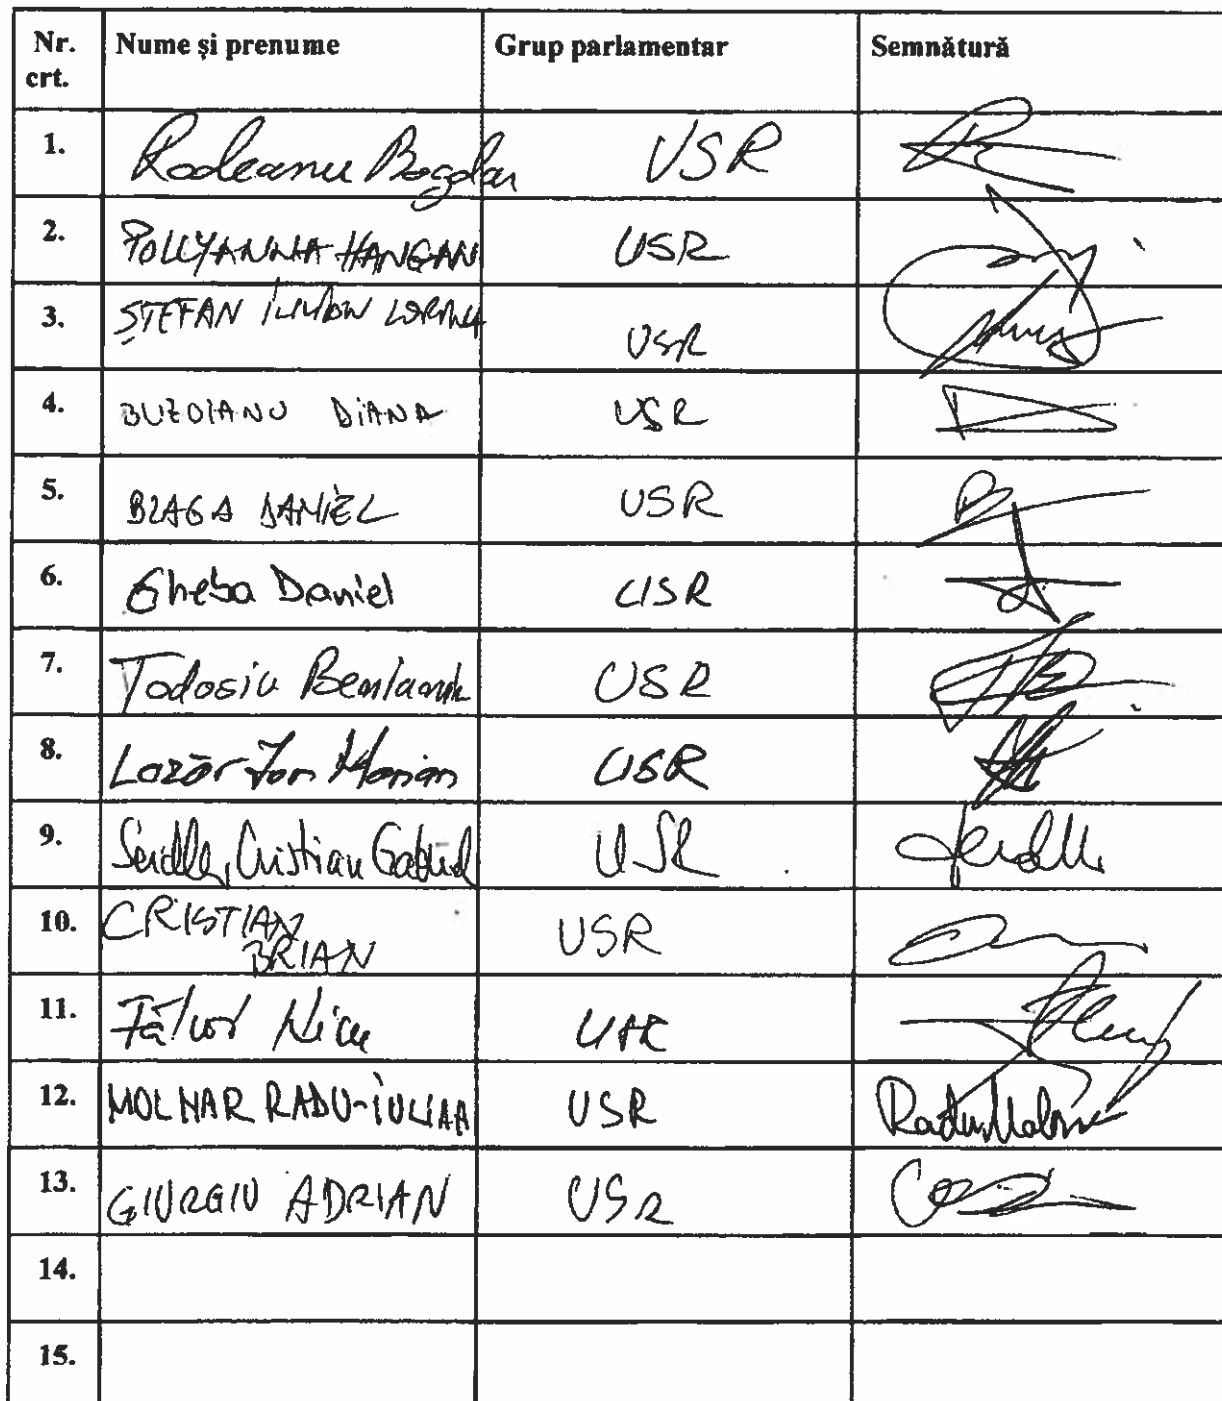 Nr. crt. Nume și prenume Grup parlamentar Semnătură
1. Rodeanu Bogdan USR
2. POLLYANNA HANGAN USR
3. ȘTEFAN IULIAN LORINCZ USR
4. BUZOIANU DIANA USR
5. BLAGA DANIEL USR
6. Gheba Daniel USR
7. Todosiu Beniamin USR
8. Lazăr Ion Marian USR
9. Seidler Cristian Gabriel USR Seidler
10. CRISTIAN BRIAN USR
11. Fălcoi Nicu USR
12. MOLNAR RADU-IULIAN USR Radu Molnar
13. GIURGIU ADRIAN USR
14.
15.